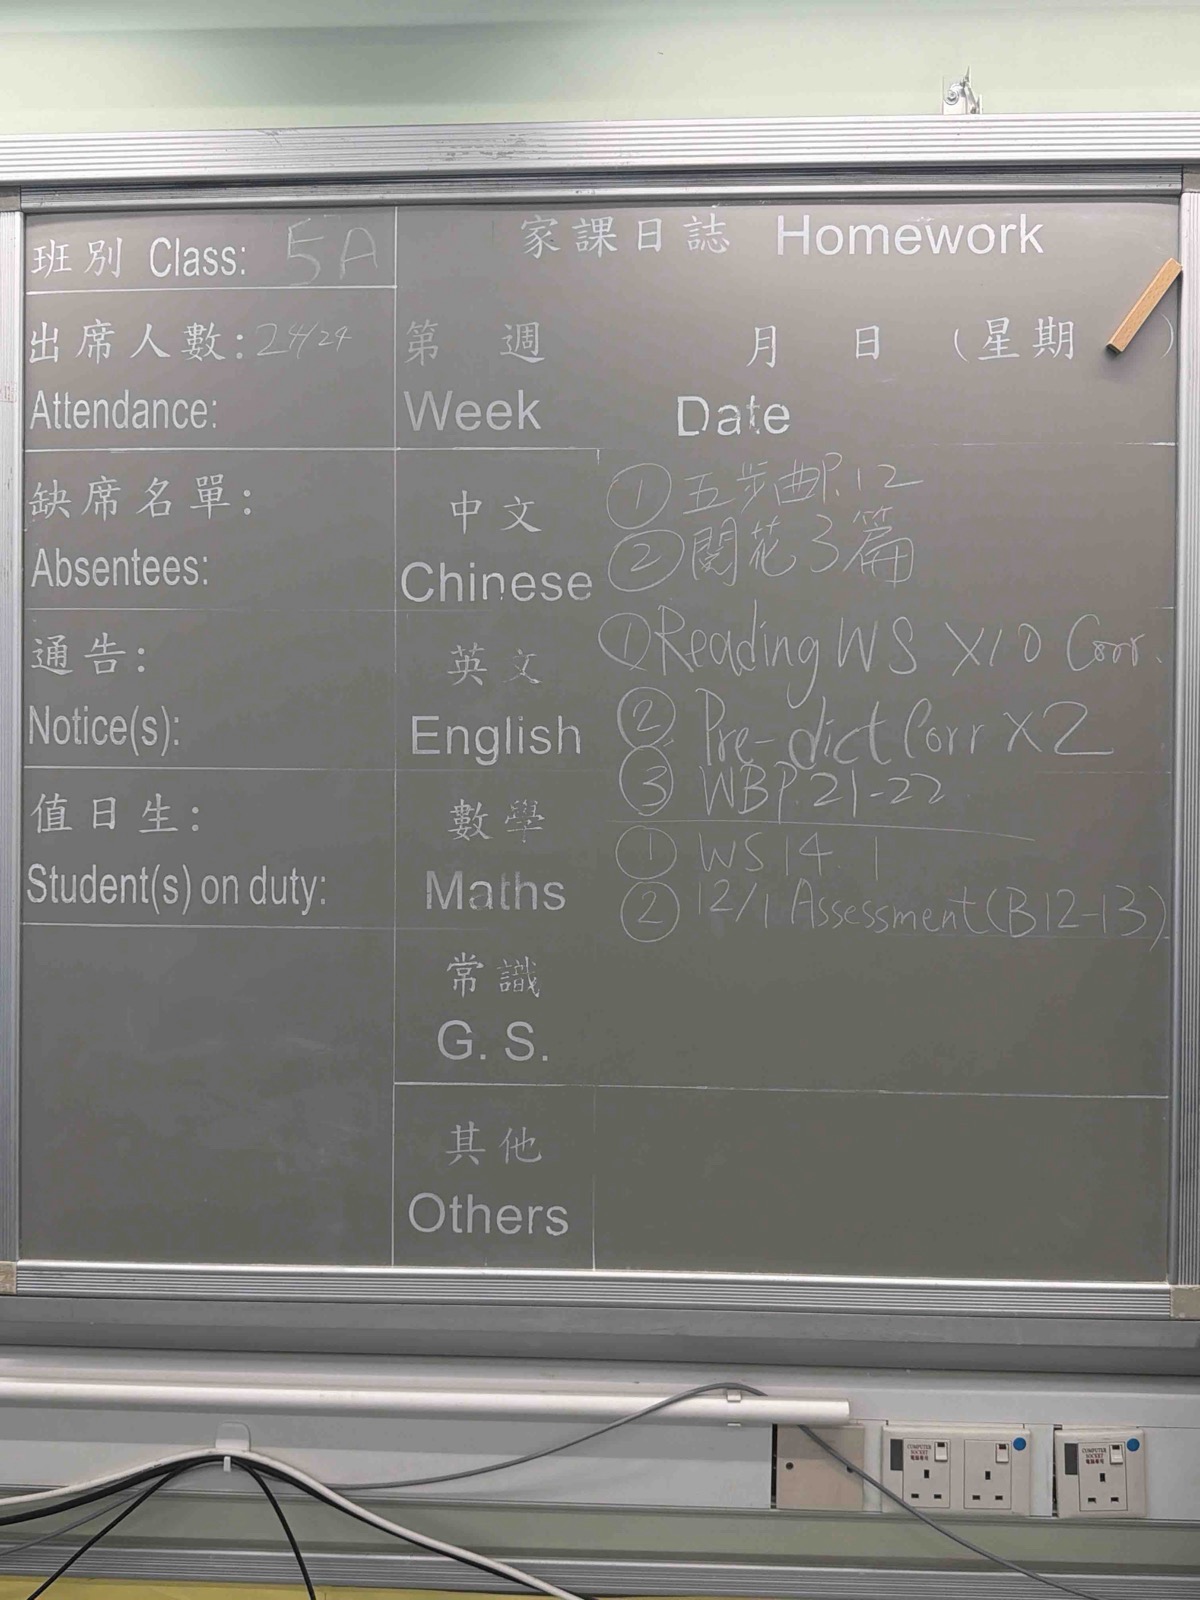 班別 Class: 5A
出席人數: 24/24
Attendance:
缺席名單:
Absentees:
通告:
Notice(s):
值日生:
Student(s) on duty:
家課日誌 Homework
第 週 月 日 (星期 )
Week Date
中文
Chinese
① 五步曲P.12
② 開花3篇
英文
English
① Reading WS X10 Corr.
② Pre-dict Corr X2
③ WBP.21-22
數學
Maths
① WS 14.1
② 12/1 Assessment (B12-13)
常識
G. S.
其他
Others
COMPUTER SOCKET
電腦專用
COMPUTER SOCKET
電腦專用